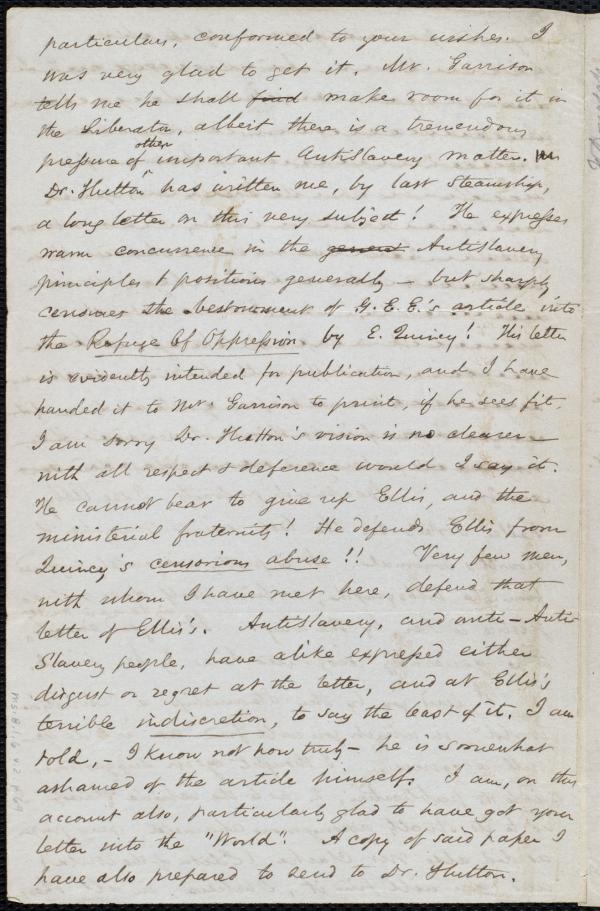 particulars, conformed to your wishes. I
was very glad to get it. Mr. Garrison
tells me he shall find make room for it in
the Liberator, albeit there is a tremendous
other
pressure of important AntiSlavery matter.
Dr. Hutton has written me, by last Steamship,
a long letter on this very subject! He expresses
warm concurrence in the general Antislavery
principles & positions generally – but sharply
censures the bestowment of G. E. E.'s article into
the Refuge Of Oppression by E. Quincy! His letter
is evidently intended for publication, and I have
handed it to Mr. Garrison to print, if he sees fit.
I am sorry Dr. Hutton's vision is no clearer –
with all respect & deference would I say it.
He cannot bear to give up Ellis, and the
ministerial fraternity! He defends Ellis from
Quincy's censorious abuse!! Very few men,
with whom I have met here, defend that
letter of Ellis's. AntiSlavery, and anti-Anti-
Slavery people, have alike expressed either
disgust or regret at the letter, and at Ellis's
terrible indiscretion, to say the least of it. I am
told, – I know not how truly – he is somewhat
ashamed of the article himself. I am, on this
account also, particularly glad to have got your
letter into the "World". A copy of said paper I
have also prepared to send to Dr. Hutton.